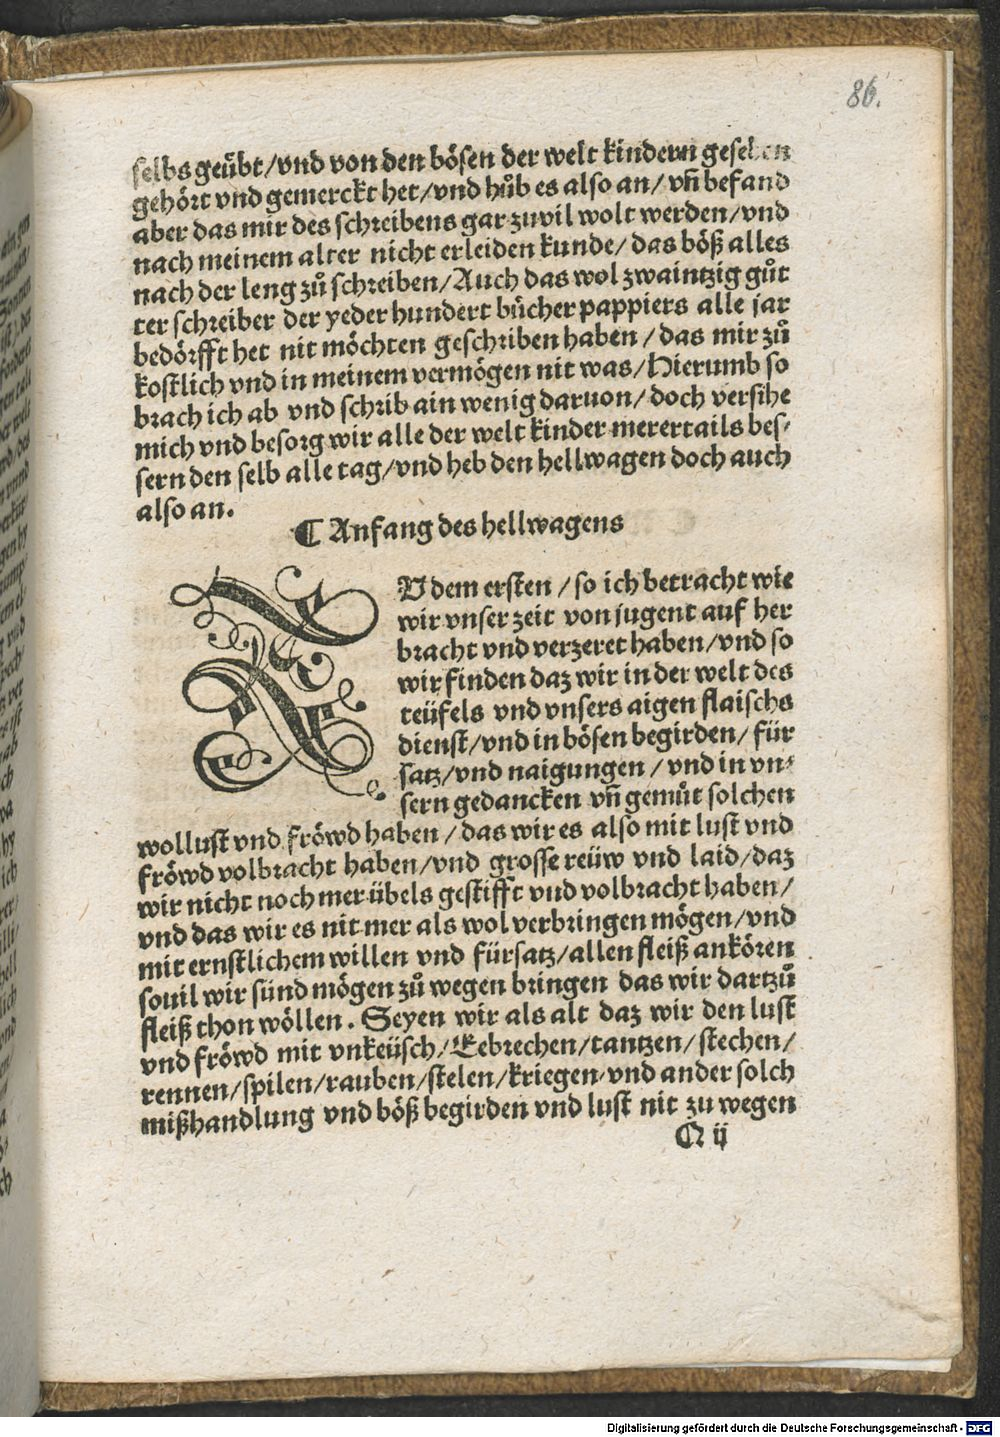 86.
selbs geübt/vnd von den bösen der welt kindern gesehen
gehört vnd gemerckt het/vnd hůb es also an/ vñ befand
aber das mir des schreibens gar zuvil wolt werden/vnd
nach meinem alter nicht erleiden kunde/ das böß alles
nach der leng zů schreiben/Auch das wol zwaintzig gůt
ter schreiber der yeder hundert bücher pappiers alle jar
bedörfft het nit möchten geschriben haben / das mir zů
kostlich vnd in meinem vermögen nit was/Hierumb so
brach ich ab vnd schrib ain wenig daruon/doch versihe
mich vnd besorg wir alle der welt kinder merertails bes-
sern den selb alle tag/vnd heb den hellwagen doch auch
also an.
¶ Anfang des hellwagens
ZV dem ersten /so ich betracht wie
wir vnser zeit von jugent auf her
bracht vnd verzeret haben/vnd so
wir finden daz wir in der welt des
teüfels vnd vnsers aigen flaischs
dienst/vnd in bösen begirden/ für
satz/vnd naigungen /vnd in vn-
sern gedancken vñ gemůt solchen
wollust vnd fröwd haben /das wir es also mit lust vnd
fröwd volbracht haben/vnd grosse reüw vnd laid/daz
wir nicht noch mer übels gestifft vnd volbracht haben/
vnd das wir es nit mer als wol verbringen mögen/vnd
mit ernstlichem willen vnd fürsatz/allen fleiß ankören
souil wir sünd mögen zů wegen bringen das wir dartzů
fleiß thon wöllen. Seyen wir als alt daz wir den lust
vnd fröwd mit vnkeüsch/Eebrechen/tantzen/stechen/
rennen/spilen/rauben/stelen/kriegen/vnd ander solch
mißhandlung vnd böß begirden vnd lust nit zu wegen
N ij
Digitalisierung gefördert durch die Deutsche Forschungsgemeinschaft - DFG